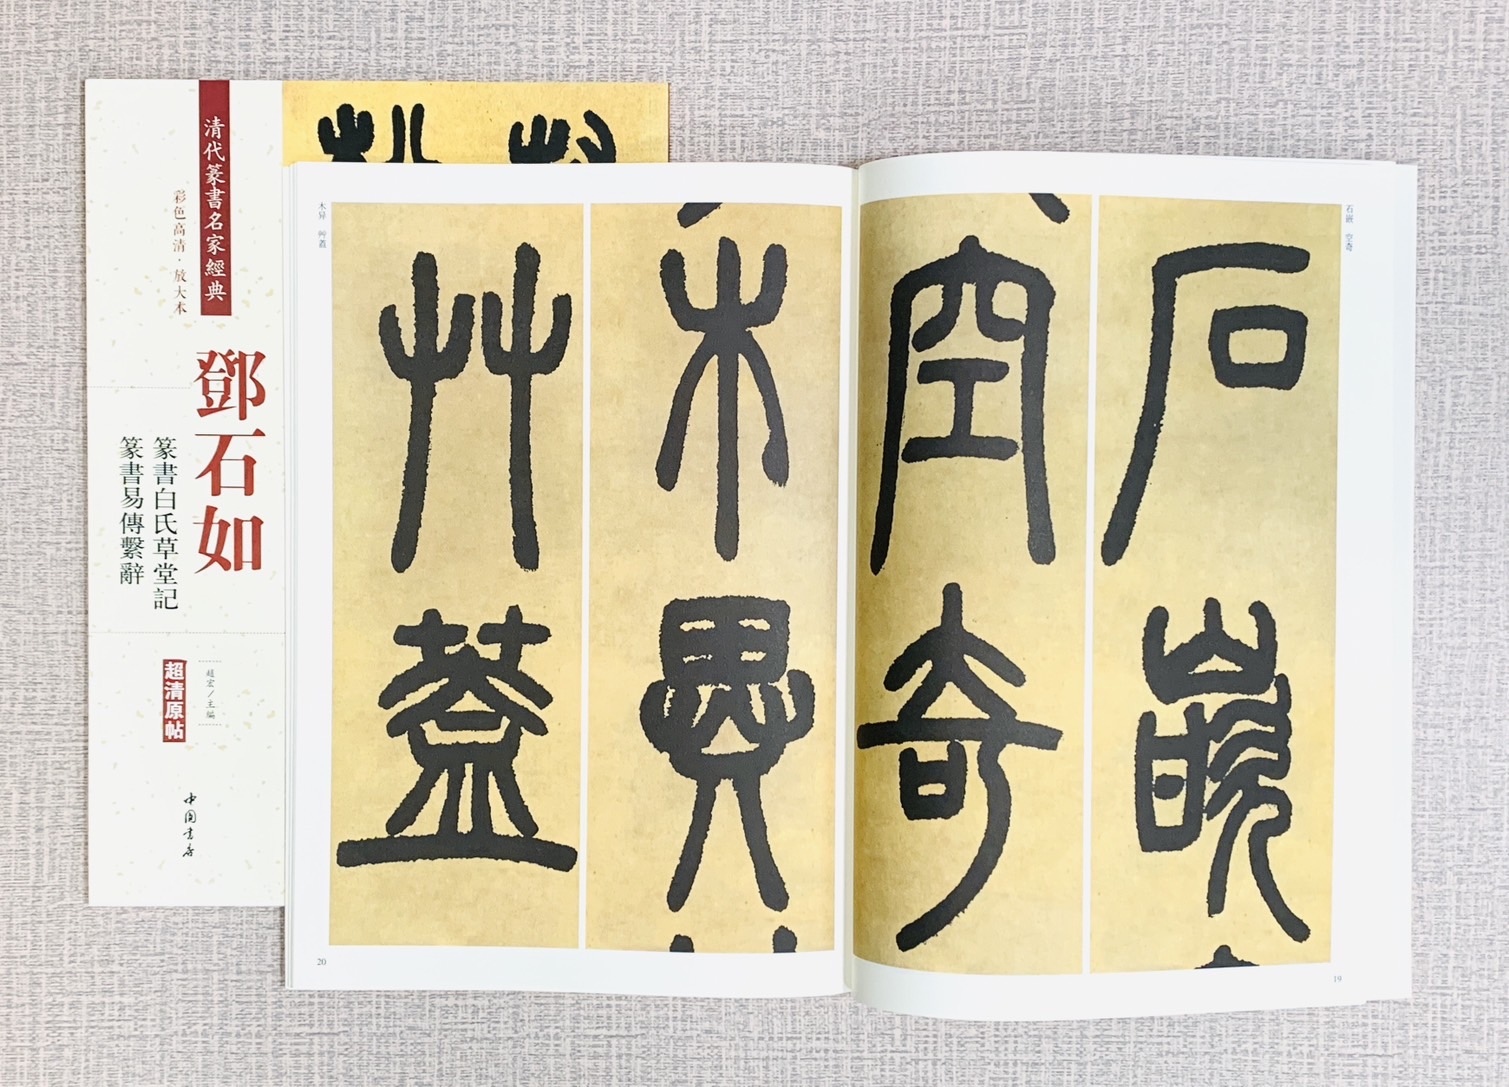 清代篆書名家經典
彩色高清·放大本
鄧石如
篆書白氏草堂記
篆書易傳繫辭
趙宏/主編
超清原帖
中国书店
石嵌 空奇
石嵌
空奇
19
木异 艸蓋
木異
艸蓋
20